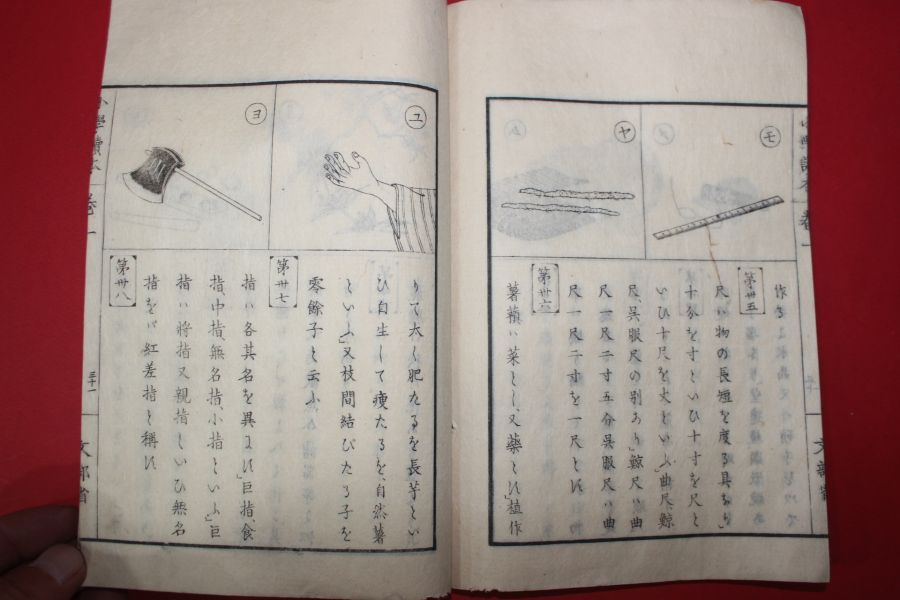 小學讀本 卷一
文部省
モ
ヤ
作る
第卅五
尺ハ物の長短を度る具なり
十分を寸といひ十寸を尺と
いひ十尺を丈といふ」曲尺、鯨
尺、呉服尺の別あり」鯨尺ハ曲
尺一尺二寸五分呉服尺ハ曲
尺一尺二寸を一尺とす
第卅六
薯蕷ハ菜とし、又藥とす植作
ユ
ヨ
りて大く肥たるを長芋とい
ひ自生して瘦たるを、自然薯
といふ」又枝間結びたる子を
零餘子と云ふ
第卅七
指ハ各其名を異にす巨指、食
指、中指、無名指、小指といふ」巨
指ハ將指又親指といひ無名
指をバ紅差指と稱す
第卅八
小學讀本 卷一
三十一
文部省